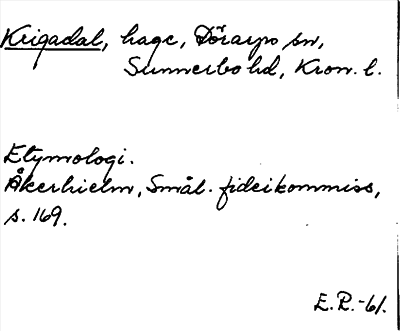 Krigadal, hage, Dörarps sn,
Sunnerbo hd, Kron. l.
Etymologi.
Åkerhielm, Smål. fideikommiss,
s. 169.
E.R.-61.